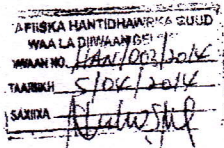 AFIISKA HANTIDHAWRKA GUUD
WAA LA DIIWAAN GELI
NO. HAN/002/2014
TAARIIKH 5/04/2014
SAXIIXA